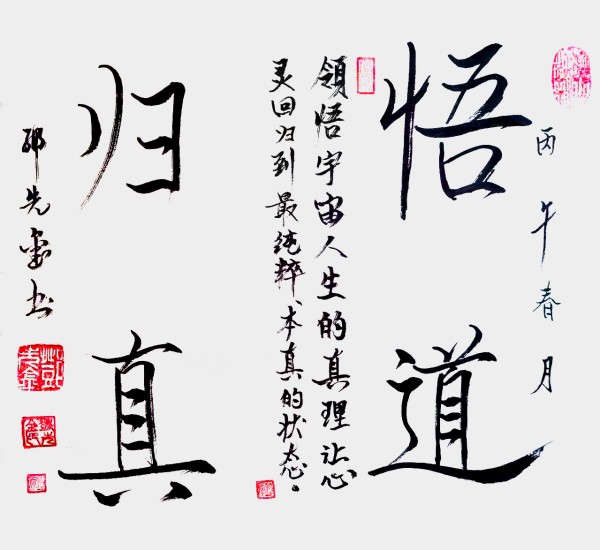 丙午春月
悟道
領悟宇宙人生的真理让心
灵回归到最纯粹、本真的状态。
归真
先 书